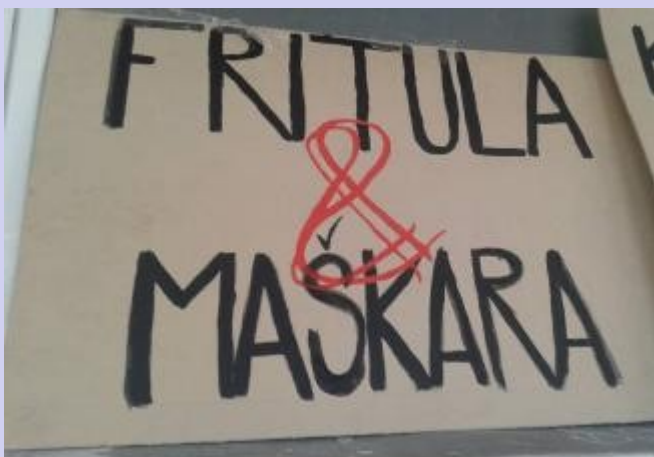 FRITULA
&
MAŠKARA